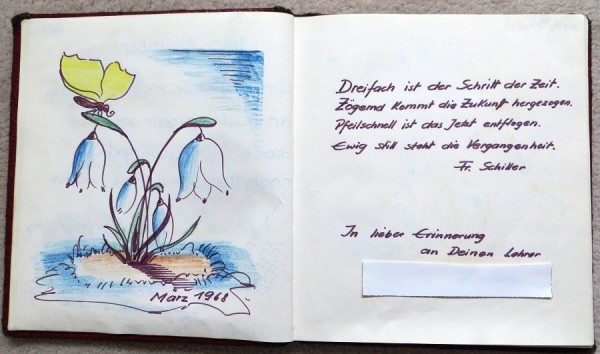 März 1968
Dreifach ist der Schritt der Zeit.
Zögernd kommt die Zukunft hergezogen.
Pfeilschnell ist das Jetzt entflogen.
Ewig still steht die Vergangenheit.
Fr. Schiller
In lieber Erinnerung
an Deinen Lehrer